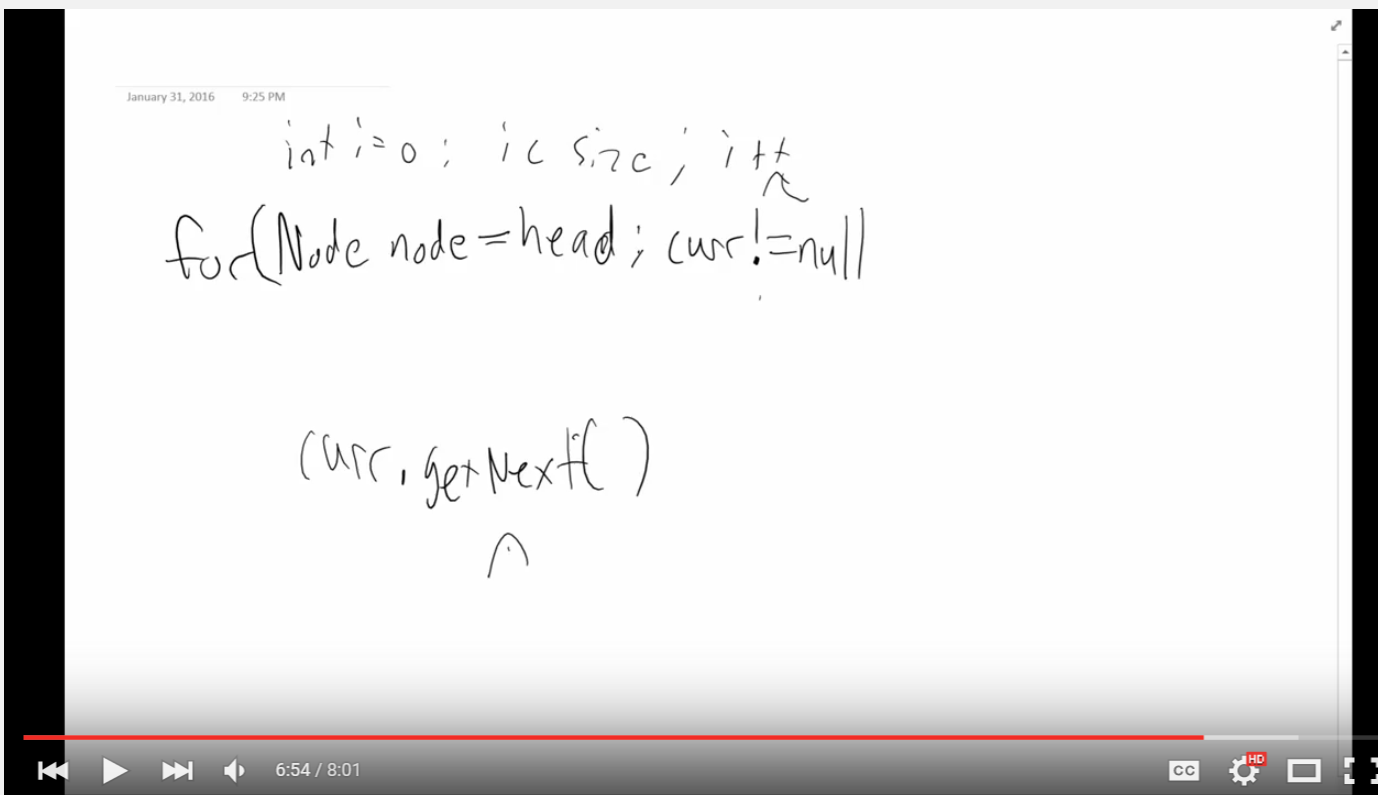 January 31, 2016 9:25 PM
int i=0; i< size; i++
for(Node node=head; curr!=null
curr.getNext()
6:54 / 8:01
CC
HD